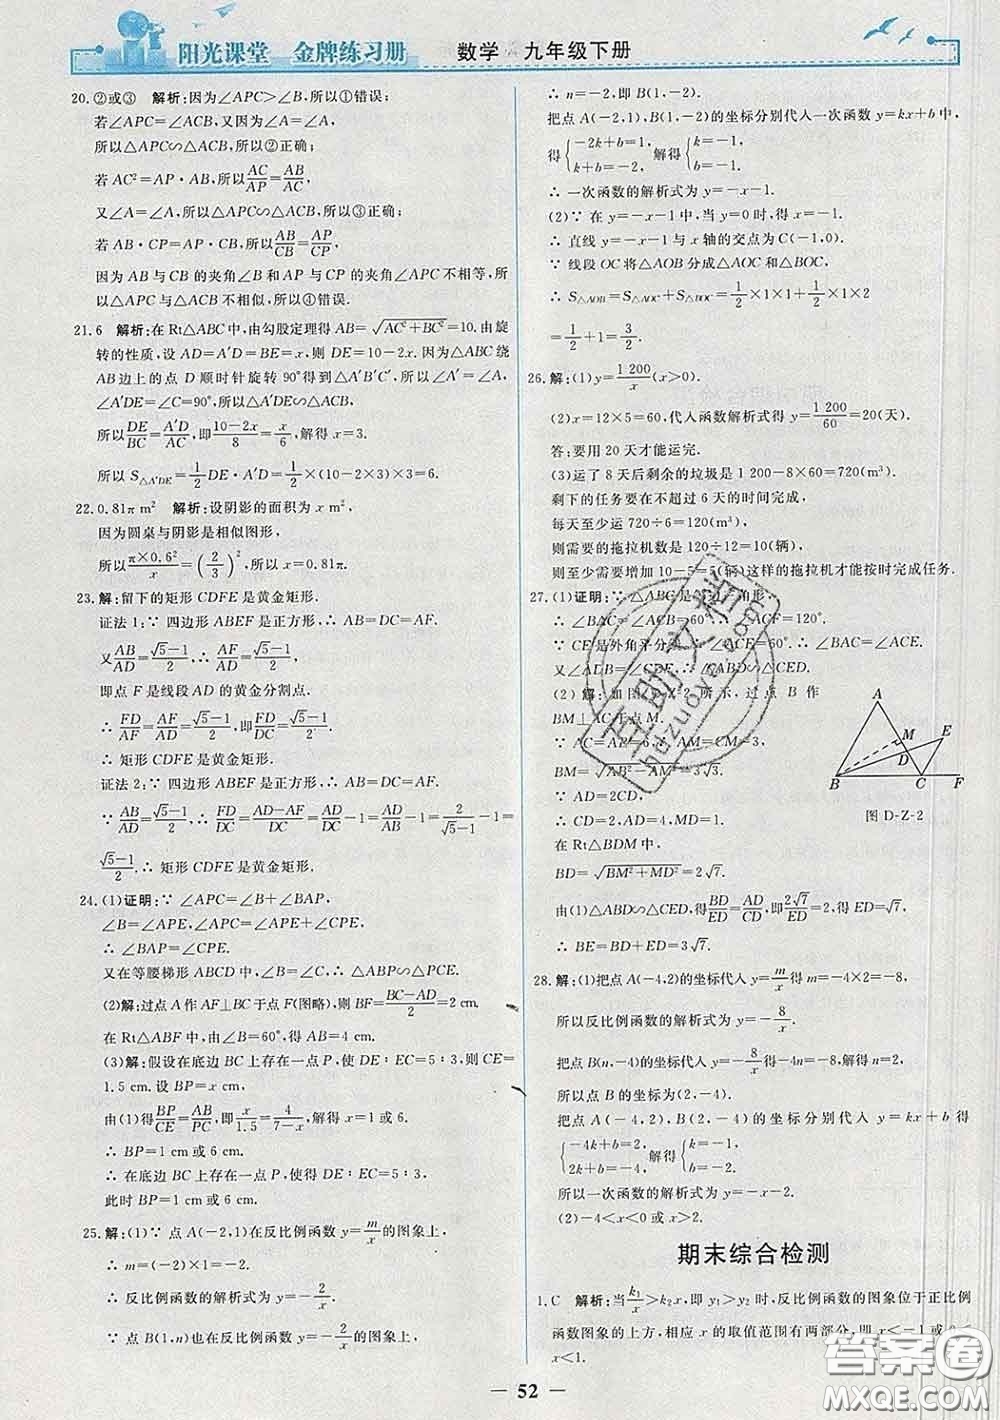 阳光课堂 金牌练习册 数学·九年级下册
20.②或③ 解析:因为∠APC>∠B,所以①错误;
若∠APC=∠ACB,又因为∠A=∠A,
所以△APC∽△ACB,所以②正确;
若 AC²=AP·AB,所以AC/AP=AB/AC,
又∠A=∠A,所以△APC∽△ACB,所以③正确;
若 AB·CP=AP·CB,所以AB/CB=AP/CP,
因为 AB 与 CB 的夹角∠B和 AP 与 CP 的夹角∠APC 不相等,所
以△APC与△ACB 不相似,所以④错误.
21.6 解析:在 Rt△ABC 中,由勾股定理得 AB=√(AC²+BC²)=10.由旋
转的性质,设 AD=A′D=BE=x,则 DE=10-2x.因为△ABC 绕
AB边上的点 D 顺时针旋转 90°得到△A′B′C′,所以∠A′=∠A,
∠A′DE=∠C=90°,所以△A′DE∽△ACB,
所以DE/BC=A′D/AC,即(10-2x)/8=x/6,解得 x=3.
所以 S△A′DE=1/2 DE·A′D=1/2×(10-2×3)×3=6.
22.0.81π m² 解析:设阴影的面积为 x m²,
因为圆桌与阴影是相似图形,
所以(π×0.6²)/x=(2/3)²,所以 x=0.81π.
23.解:留下的矩形 CDFE 是黄金矩形.
证法 1:∵ 四边形 ABEF 是正方形,∴ AB=AF.
又AB/AD=(√5-1)/2,∴ AF/AD=(√5-1)/2,
即点 F 是线段 AD 的黄金分割点.
∴ FD/AF=AF/AD=(√5-1)/2,∴ FD/DC=(√5-1)/2.
∴ 矩形 CDFE 是黄金矩形.
证法 2:∵ 四边形 ABEF 是正方形,∴ AB=AF.
∵ AB/AD=(√5-1)/2,∴ FD/DC=(AD-AF)/DC=AD/DC-AF/DC=AD/AB-1=2/(√5-1)-1=
(√5-1)/2.∴ 矩形 CDFE 是黄金矩形.
24.(1)证明:∵ ∠APC=∠B+∠BAP,
∠B=∠APE,∠APC=∠APE+∠CPE,
∴ ∠BAP=∠CPE.
又在等腰梯形 ABCD 中,∠B=∠C,∴ △ABP∽△PCE.
(2)解:过点 A 作 AF⊥BC 于点 F(图略),则 BF=(BC-AD)/2=2 cm,
在 Rt△ABF 中,由∠B=60°,得 AB=4 cm.
(3)解:假设在底边 BC 上存在一点 P,使 DE∶EC=5∶3,则 CE=
1.5 cm.设 BP=x cm,
由(1)得BP/CE=AB/PC,即x/1.5=4/(7-x),解得 x=1或 6.
∴ BP=1 cm或 6 cm.
∴ 在底边 BC上存在一点 P,使得 DE∶EC=5∶3,
此时 BP=1 cm或 6 cm.
25.解:(1)∵ 点 A(-2,1)在反比例函数 y=m/x的图象上,
∴ m=(-2)×1=-2.
∴ 反比例函数的解析式为 y=-2/x.
∵ 点 B(1,n)也在反比例函数 y=-2/x的图象上,
∴ n=-2,即 B(1,-2).
把点 A(-2,1),B(1,-2)的坐标分别代入一次函数 y=kx+b 中,
得{-2k+b=1, k+b=-2, 解得{k=-1, b=-1.
∴ 一次函数的解析式为 y=-x-1.
(2)∵ 在 y=-x-1中,当 y=0时,得 x=-1.
∴ 直线 y=-x-1与 x 轴的交点为 C(-1,0).
∵ 线段 OC 将△AOB 分成△AOC 和△BOC,
∴ S△AOB=S△AOC+S△BOC=1/2×1×1+1/2×1×2
=1/2+1=3/2.
26.解:(1)y=1 200/x(x>0).
(2)x=12×5=60,代入函数解析式得 y=1 200/60=20(天).
答:要用 20 天才能运完.
(3)运了 8 天后剩余的垃圾是 1 200-8×60=720(m³).
剩下的任务要在不超过 6 天的时间完成,
每天至少运 720÷6=120(m³),
则需要的拖拉机数是 120÷12=10(辆),
则至少需要增加 10-5=5(辆)这样的拖拉机才能按时完成任务.
27.(1)证明:∵ △ABC 角形,
∴ ∠BAC=∠ACB=60°, ∠ACF=120°.
∵ CE是外角平分线, 60°,∴ ∠BAC=∠ACE.
又∠ADB=∠CDE,∴ △ABD∽△CED.
(2)解:如图 D-Z-2 所示,过点 B 作
BM⊥AC于点 M.
∵ AC=AB=6,∴ AM=CM=3,
BM=√(AB²-AM²)=3√3.
∵ AD=2CD,
∴ CD=2,AD=4,MD=1.
在 Rt△BDM 中,
BD=√(BM²+MD²)=2√7.
由(1)△ABD∽△CED,得BD/ED=AD/CD,即2√7/ED=2,得 ED=√7,
∴ BE=BD+ED=3√7.
A
M
E
D
B
C
F
图 D-Z-2
28.解:(1)把点 A(-4,2)的坐标代入 y=m/x得 m=-4×2=-8,
所以反比例函数的解析式为 y=-8/x.
把点 B(n,-4)的坐标代入 y=-8/x得-4n=-8,解得 n=2,
所以点 B 的坐标为(2,-4).
把点 A(-4,2),B(2,-4)的坐标分别代入 y=kx+b 得
{-4k+b=2, 2k+b=-4, 解得{k=-1, b=-2,
所以一次函数的解析式为 y=-x-2.
(2)-4<x<0 或 x>2.
期末综合检测
1.C 解析:当k₁/x>k₂x,即 y₁>y₂时,反比例函数的图象位于正比例
函数图象的上方,相应 x 的取值范围有两部分,即 x<-1
x<1.
52
答案圈
MXQE.COM